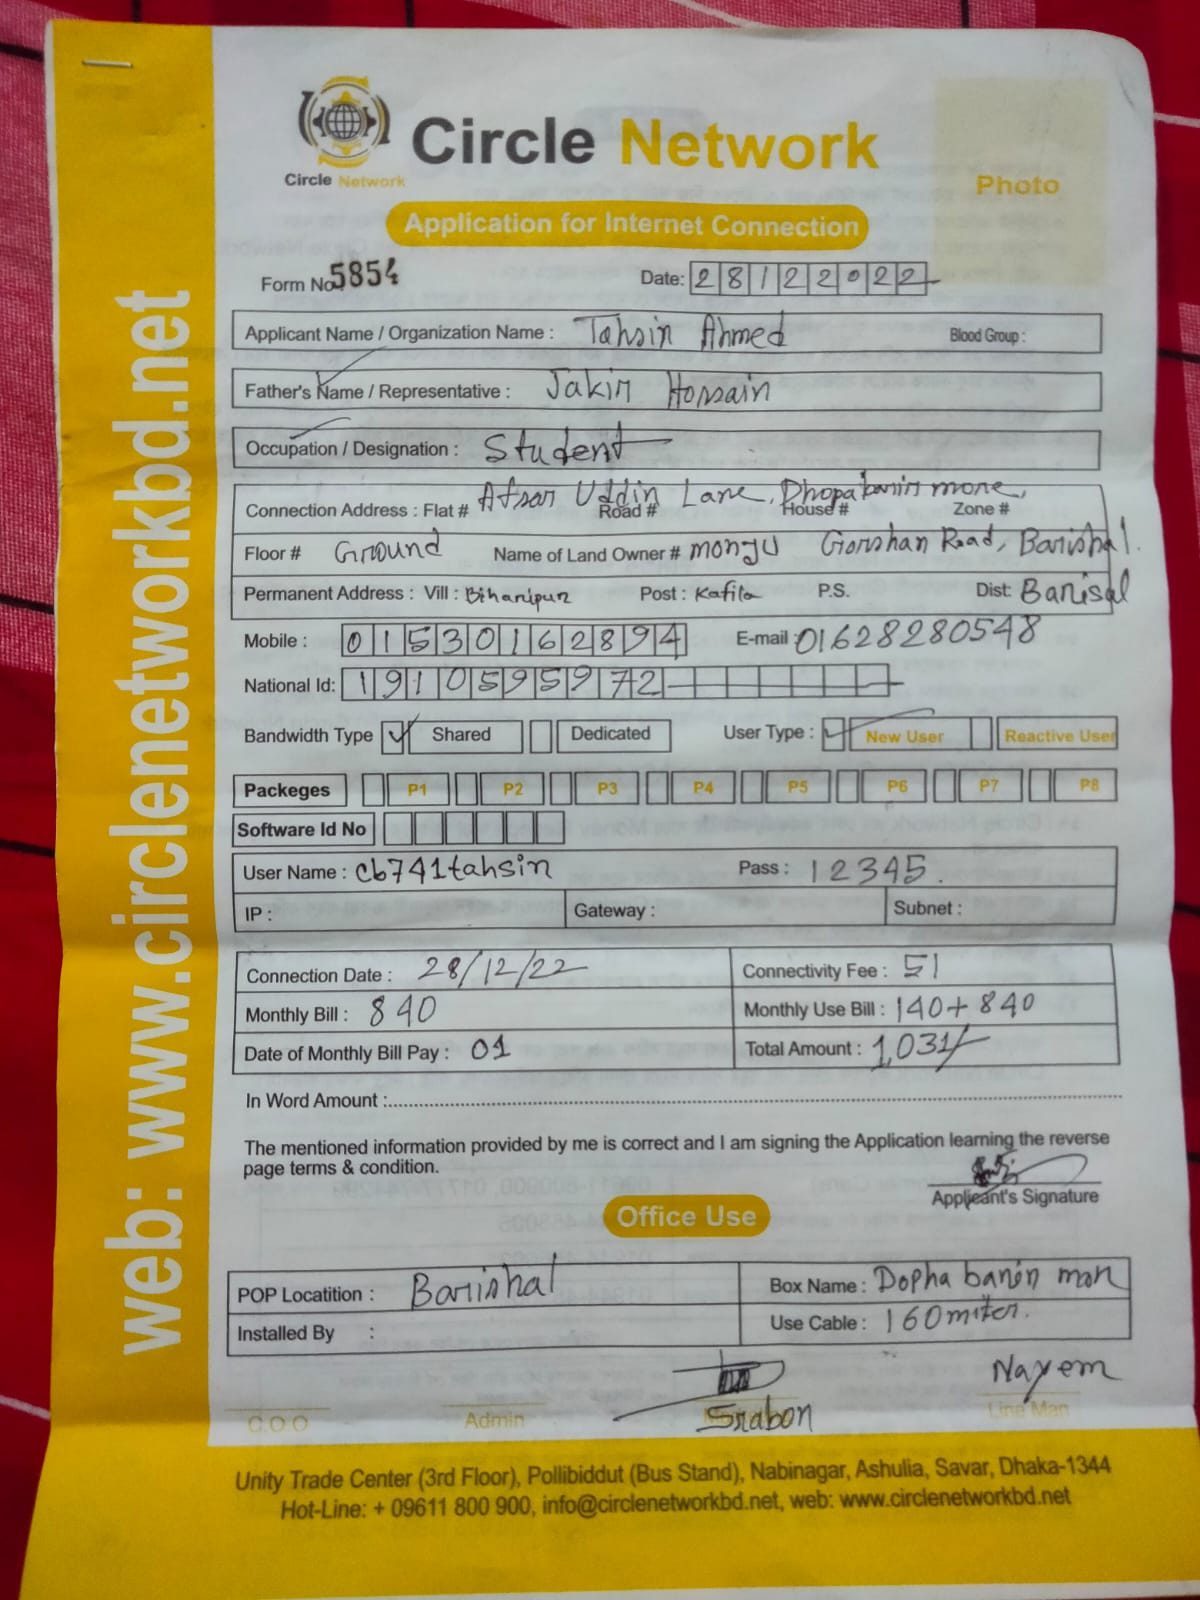 Circle Network
Circle Network
Photo
Application for Internet Connection
Form No. 5854
Date: 28122022
Applicant Name / Organization Name : Tahsin Ahmed Blood Group :
Father's Name / Representative : Jakir Hossain
Occupation / Designation : Student
Connection Address : Flat # Afsar Uddin Lane, Dhopabarir more, Road # House # Zone #
Floor # Ground Name of Land Owner # monju Gorsthan Road, Barishal.
Permanent Address : Vill : Biharipur Post : Kafila P.S. Dist: Barisal
Mobile : 01530162894 E-mail : 01628280548
National Id: 1910595972
Bandwidth Type Shared Dedicated User Type : New User Reactive User
Packeges P1 P2 P3 P4 P5 P6 P7 P8
Software Id No
User Name : cb741tahsin Pass : 12345.
IP : Gateway : Subnet :
Connection Date : 28/12/22 Connectivity Fee : 51
Monthly Bill : 840 Monthly Use Bill : 140+840
Date of Monthly Bill Pay : 01 Total Amount : 1,031/-
In Word Amount :
The mentioned information provided by me is correct and I am signing the Application learning the reverse
page terms & condition.
Applicant's Signature
Office Use
POP Locatition : Barishal Box Name : Dopha barir mor
Installed By : Use Cable : 160 miter.
Srabon Nayem
C.O.O Admin Line Man
Unity Trade Center (3rd Floor), Pollibiddut (Bus Stand), Nabinagar, Ashulia, Savar, Dhaka-1344
Hot-Line: + 09611 800 900, info@circlenetworkbd.net, web: www.circlenetworkbd.net
web: www.circlenetworkbd.net